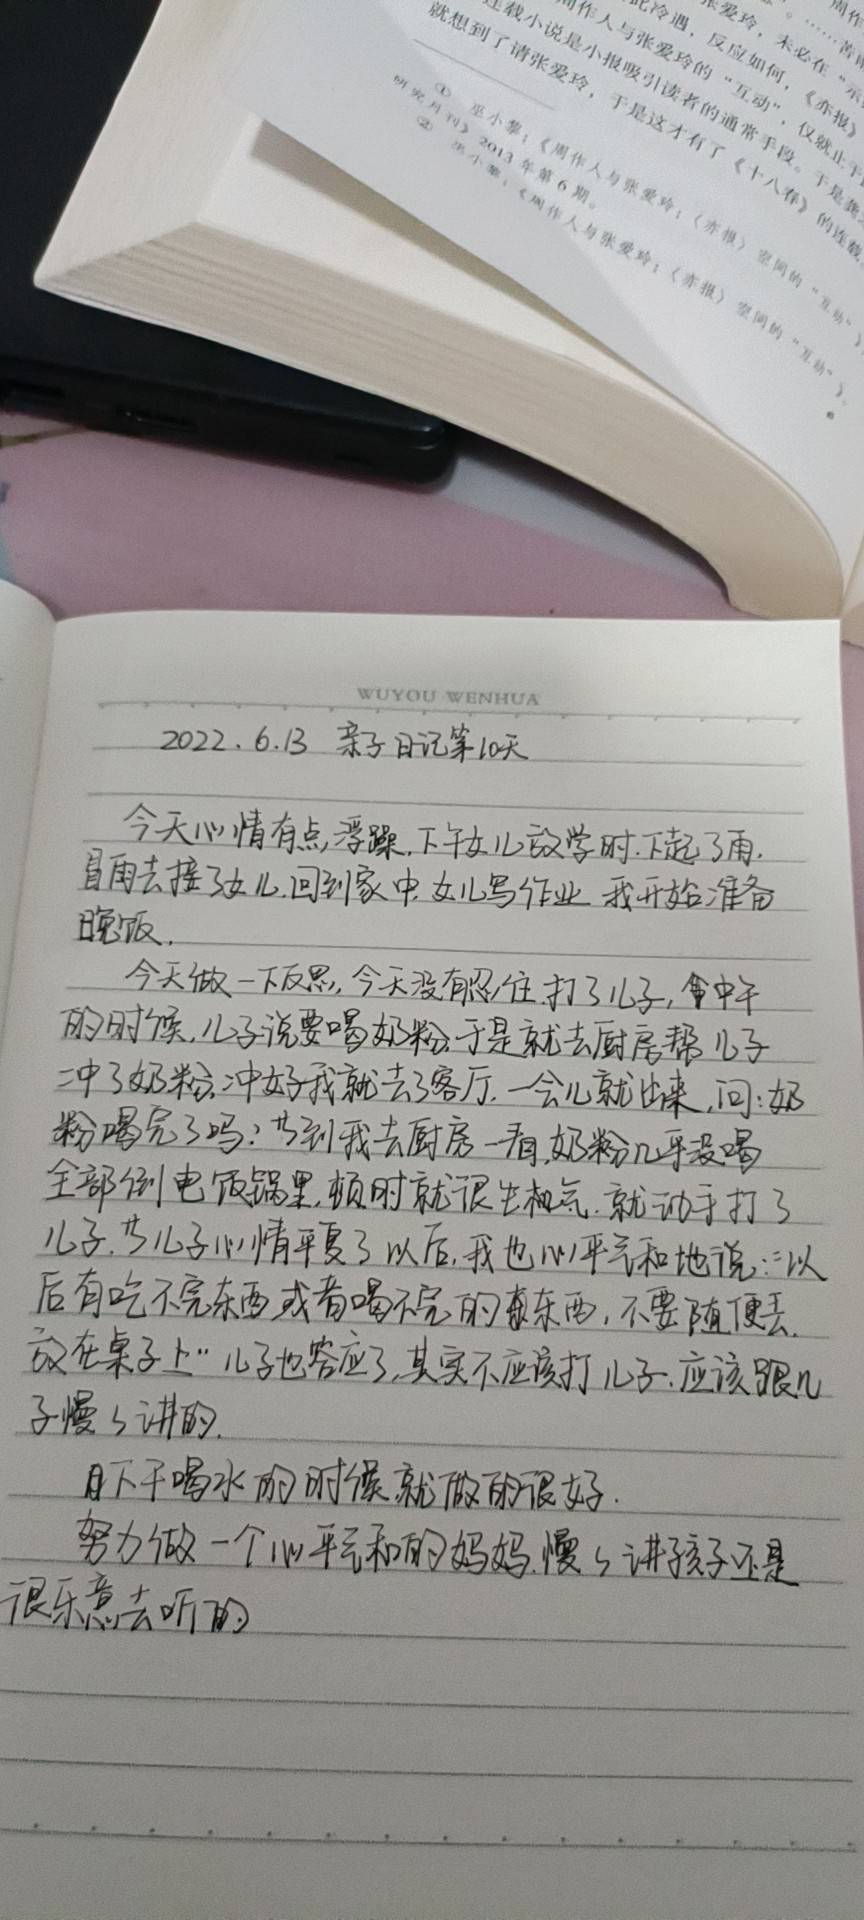 张爱玲，未必在“示
此冷遇，反应如何，《亦报》
周作人与张爱玲的“互动”，仅就止于
连载小说是小报吸引读者的通常手段。于是龚
就想到了请张爱玲，于是这才有了《十八春》的连载
① 巫小黎：《周作人与张爱玲：〈亦报〉空间的“互动”》，
研究月刊》2013年第6期。
② 巫小黎：《周作人与张爱玲：〈亦报〉空间的“互动”》。
WUYOU WENHUA
2022.6.13 亲子日记第10天
今天心情有点浮躁,下午女儿放学时.下起了雨.
冒雨去接了女儿.回到家中.女儿写作业 我开始准备
晚饭.
今天做一下反思,今天没有忍住.打了儿子,中午
的时候,儿子说要喝奶粉.于是就去厨房帮儿子
冲了奶粉.冲好我就去了客厅.一会儿就出来,问:奶
粉喝完了吗?当到我去厨房一看,奶粉几乎没喝
全部倒电饭锅里,顿时就很生气.就动手打了
儿子.当儿子心情平复了以后,我也心平气和地说:“以
后有吃不完东西或者喝不完的东西,不要随便丢.
放在桌子上”儿子也答应了,其实不应该打儿子.应该跟儿
子慢慢讲的.
下午喝水的时候就做的很好.
努力做一个心平气和的妈妈.慢慢讲孩子还是
很乐意去听的